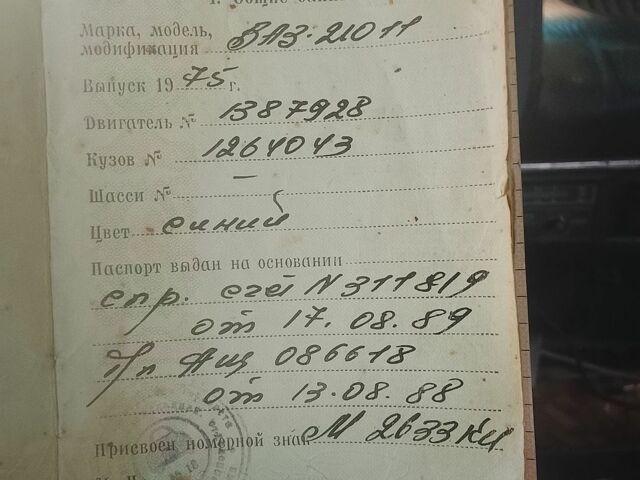 1. Общие
Марка, модель,
модификация ВАЗ-21011
Выпуск 1975 г.
Двигатель № 1387928
Кузов № 1264043
Шасси № —
Цвет синий
Паспорт выдан на основании
спр. счёт N 311819
от 17.08.89
086618
от 13.08.88
Присвоен номерной знак М 2633 КИ